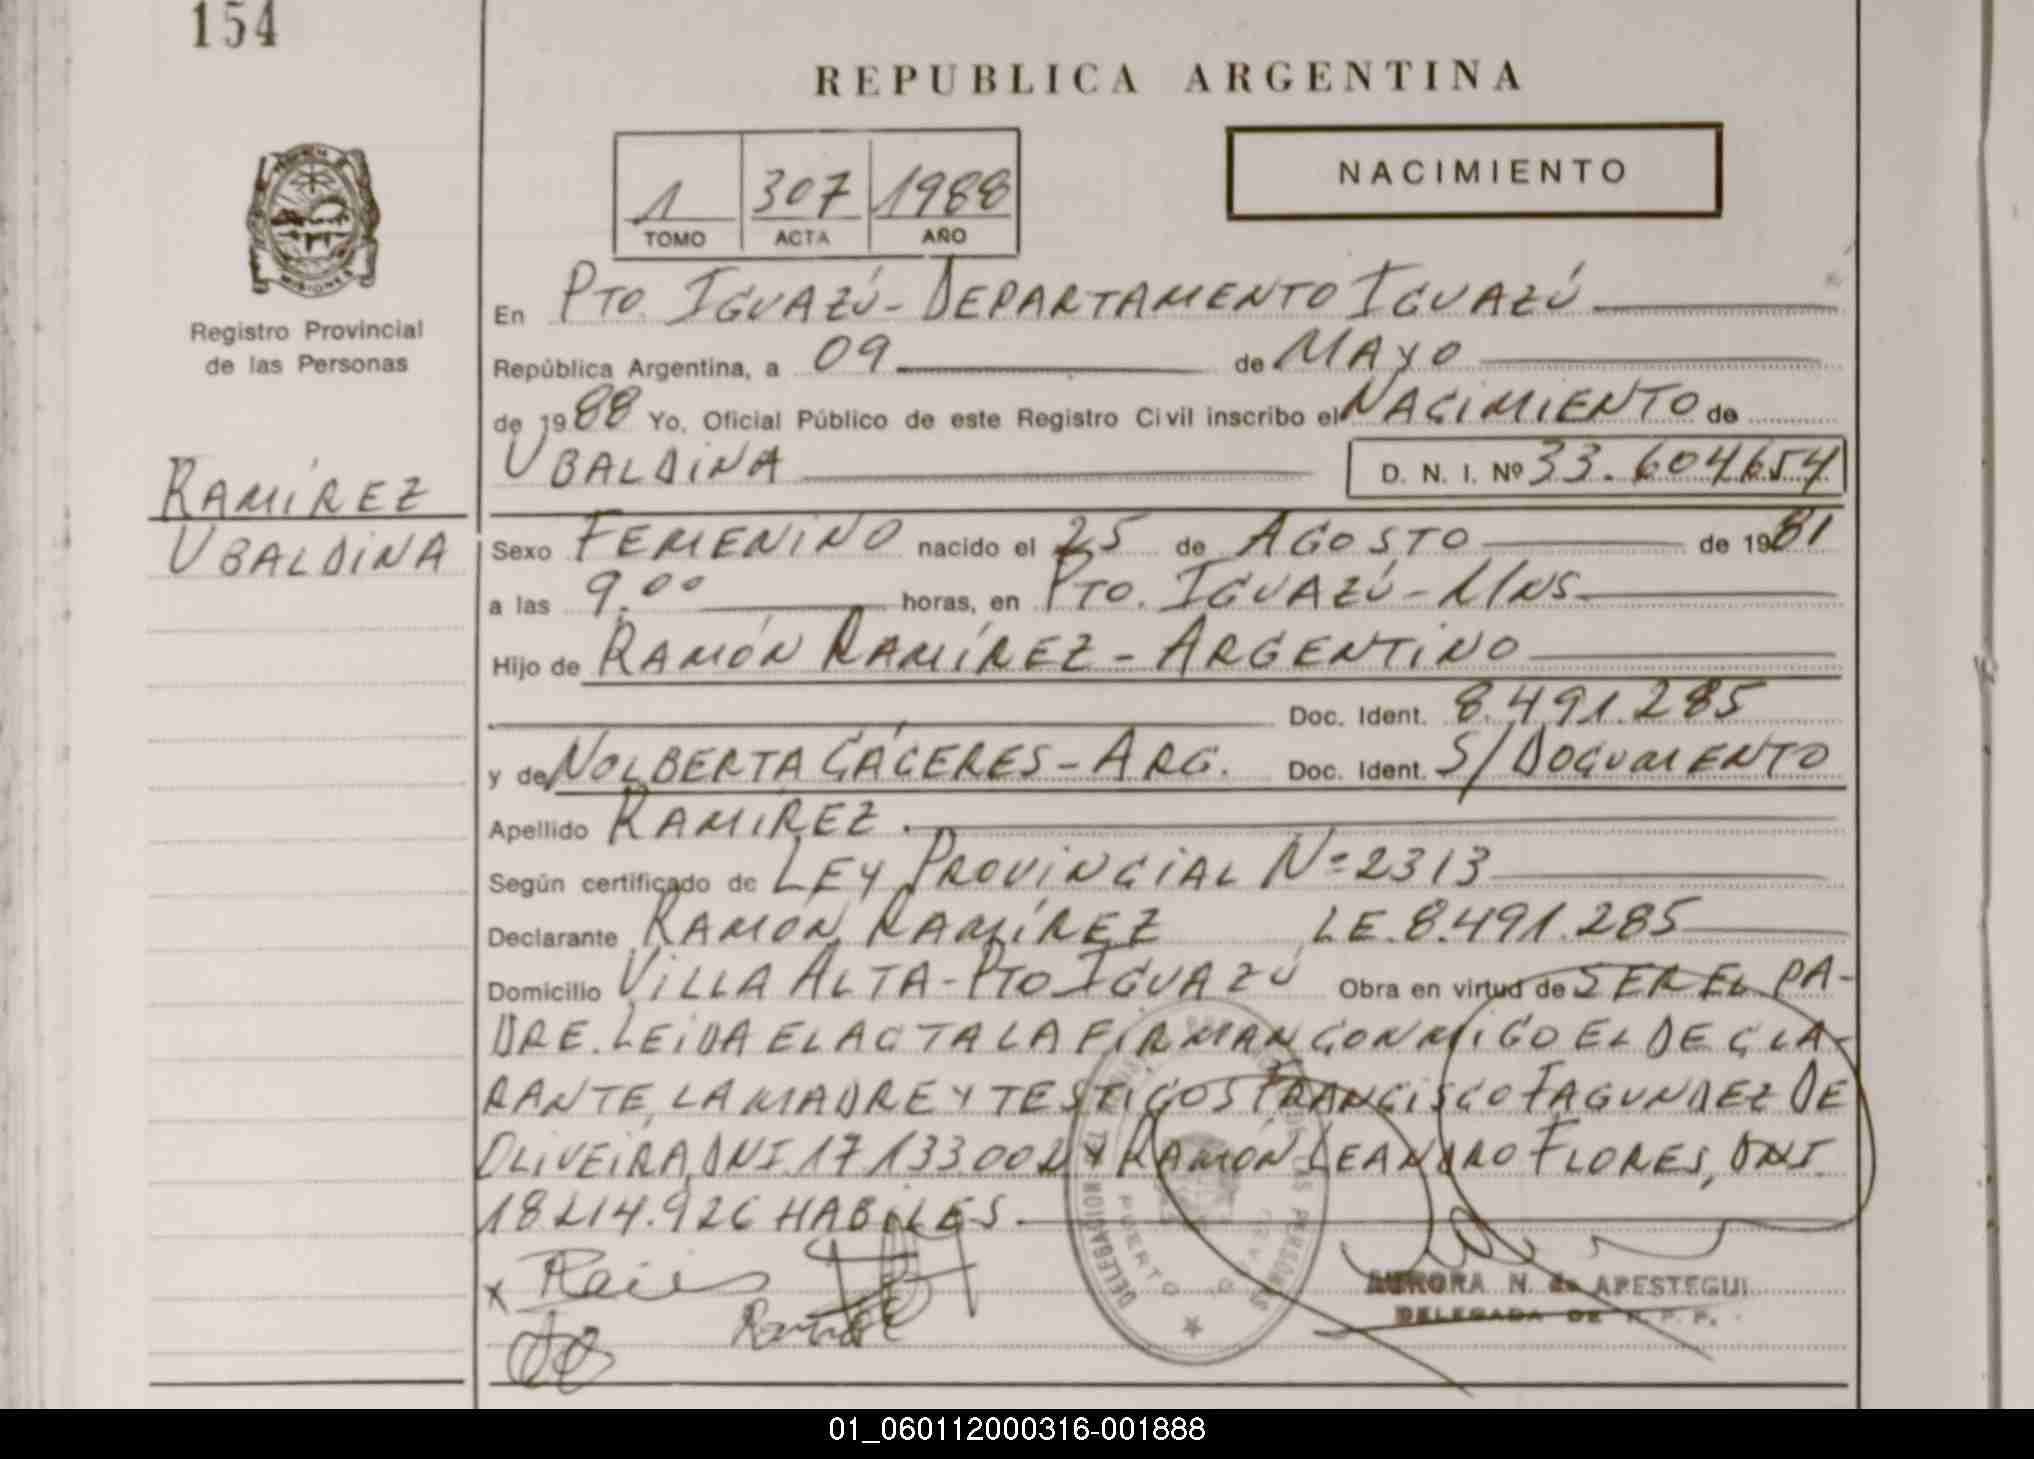 154
REPUBLICA ARGENTINA
1 307 1988
TOMO ACTA AÑO
NACIMIENTO
MISIONES
Registro Provincial
de las Personas
RAMÍREZ
UBALDINA
En PTO. IGUAZÚ - DEPARTAMENTO IGUAZÚ
República Argentina, a 09 de MAYO
de 1988 Yo, Oficial Público de este Registro Civil inscribo el NACIMIENTO de
UBALDINA D. N. I. Nº 33.604654
Sexo FEMENINO nacido el 25 de AGOSTO de 1981
a las 9.00 horas, en PTO. IGUAZÚ - MNS
Hijo de RAMÓN RAMÍREZ - ARGENTINO
Doc. Ident. 8.491.285
y de NOLBERTA CÁCERES - ARG. Doc. Ident. S/DOCUMENTO
Apellido RAMÍREZ.
Según certificado de LEY PROVINCIAL Nº 2313
Declarante RAMÓN RAMÍREZ LE.8.491.285
Domicilio VILLA ALTA - PTO IGUAZÚ Obra en virtud de SER EL PA-
DRE. LEIDA EL ACTA LA FIRMAN CONMIGO EL DECLA-
RANTE, LA MADRE Y TESTIGOS FRANCISCO FAGUNDEZ DE
OLIVEIRA, DNI 17 133.002 Y RAMÓN LEANDRO FLORES, DNI.
18 214.926 HABILES.
AURORA N. de APESTEGUI
DELEGADA DE R. P. P.
01_060112000316-001888